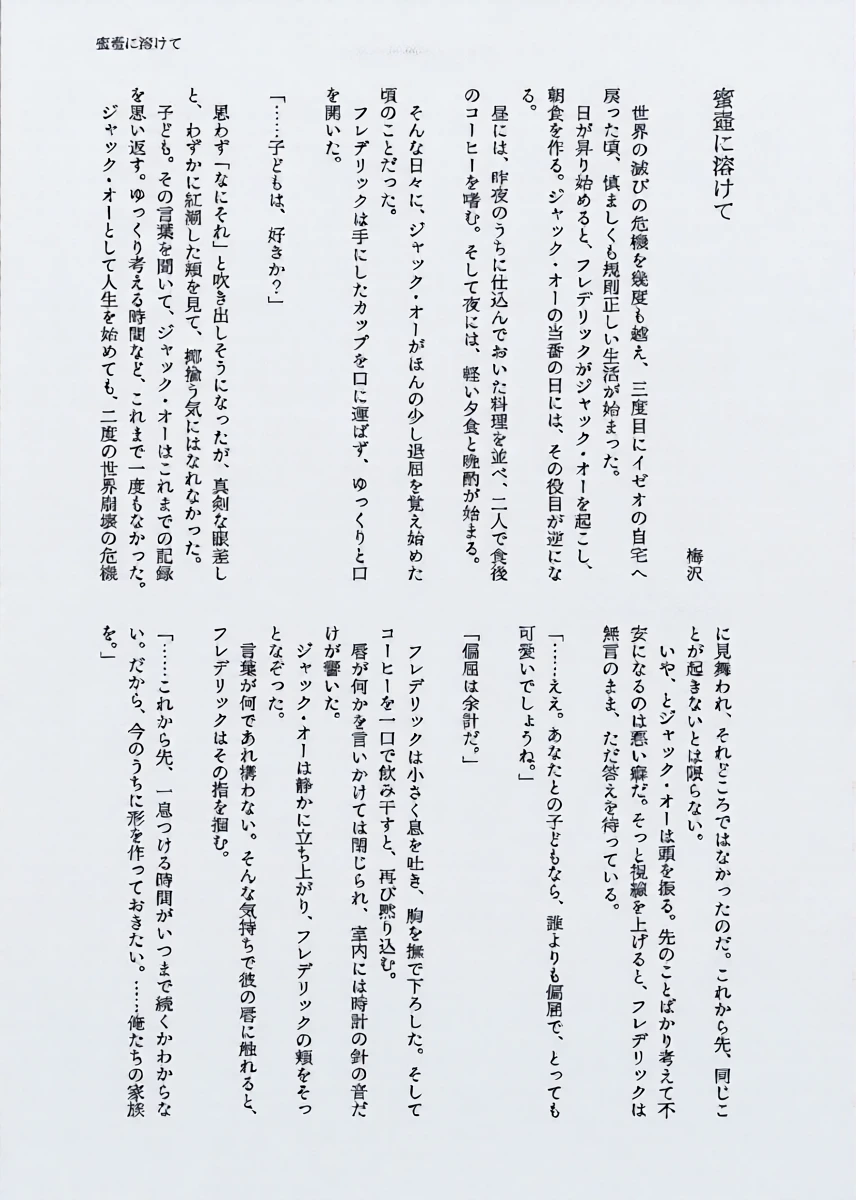 蜜壺に溶けて
蜜壺に溶けて
梅沢
世界の滅びの危機を幾度も越え、三度目にイゼオの自宅へ
戻った頃、慎ましくも規則正しい生活が始まった。
日が昇り始めると、フレデリックがジャック・オーを起こし、
朝食を作る。ジャック・オーの当番の日には、その役目が逆にな
る。
昼には、昨夜のうちに仕込んでおいた料理を並べ、二人で食後
のコーヒーを嗜む。そして夜には、軽い夕食と晩酌が始まる。
そんな日々に、ジャック・オーがほんの少し退屈を覚え始めた
頃のことだった。
フレデリックは手にしたカップを口に運ばず、ゆっくりと口
を開いた。
「……子どもは、好きか?」
思わず「なにそれ」と吹き出しそうになったが、真剣な眼差し
と、わずかに紅潮した頬を見て、揶揄う気にはなれなかった。
子ども。その言葉を聞いて、ジャック・オーはこれまでの記録
を思い返す。ゆっくり考える時間など、これまで一度もなかった。
ジャック・オーとして人生を始めても、二度の世界崩壊の危機
に見舞われ、それどころではなかったのだ。これから先、同じこ
とが起きないとは限らない。
いや、とジャック・オーは頭を振る。先のことばかり考えて不
安になるのは悪い癖だ。そっと視線を上げると、フレデリックは
無言のまま、ただ答えを待っている。
「……ええ。あなたとの子どもなら、誰よりも偏屈で、とっても
可愛いでしょうね。」
「偏屈は余計だ。」
フレデリックは小さく息を吐き、胸を撫で下ろした。そして
コーヒーを一口で飲み干すと、再び黙り込む。
唇が何かを言いかけては閉じられ、室内には時計の針の音だ
けが響いた。
ジャック・オーは静かに立ち上がり、フレデリックの頬をそっ
となぞった。
言葉が何であれ構わない。そんな気持ちで彼の唇に触れると、
フレデリックはその指を掴む。
「……これから先、一息つける時間がいつまで続くかわからな
い。だから、今のうちに形を作っておきたい。……俺たちの家族
を。」